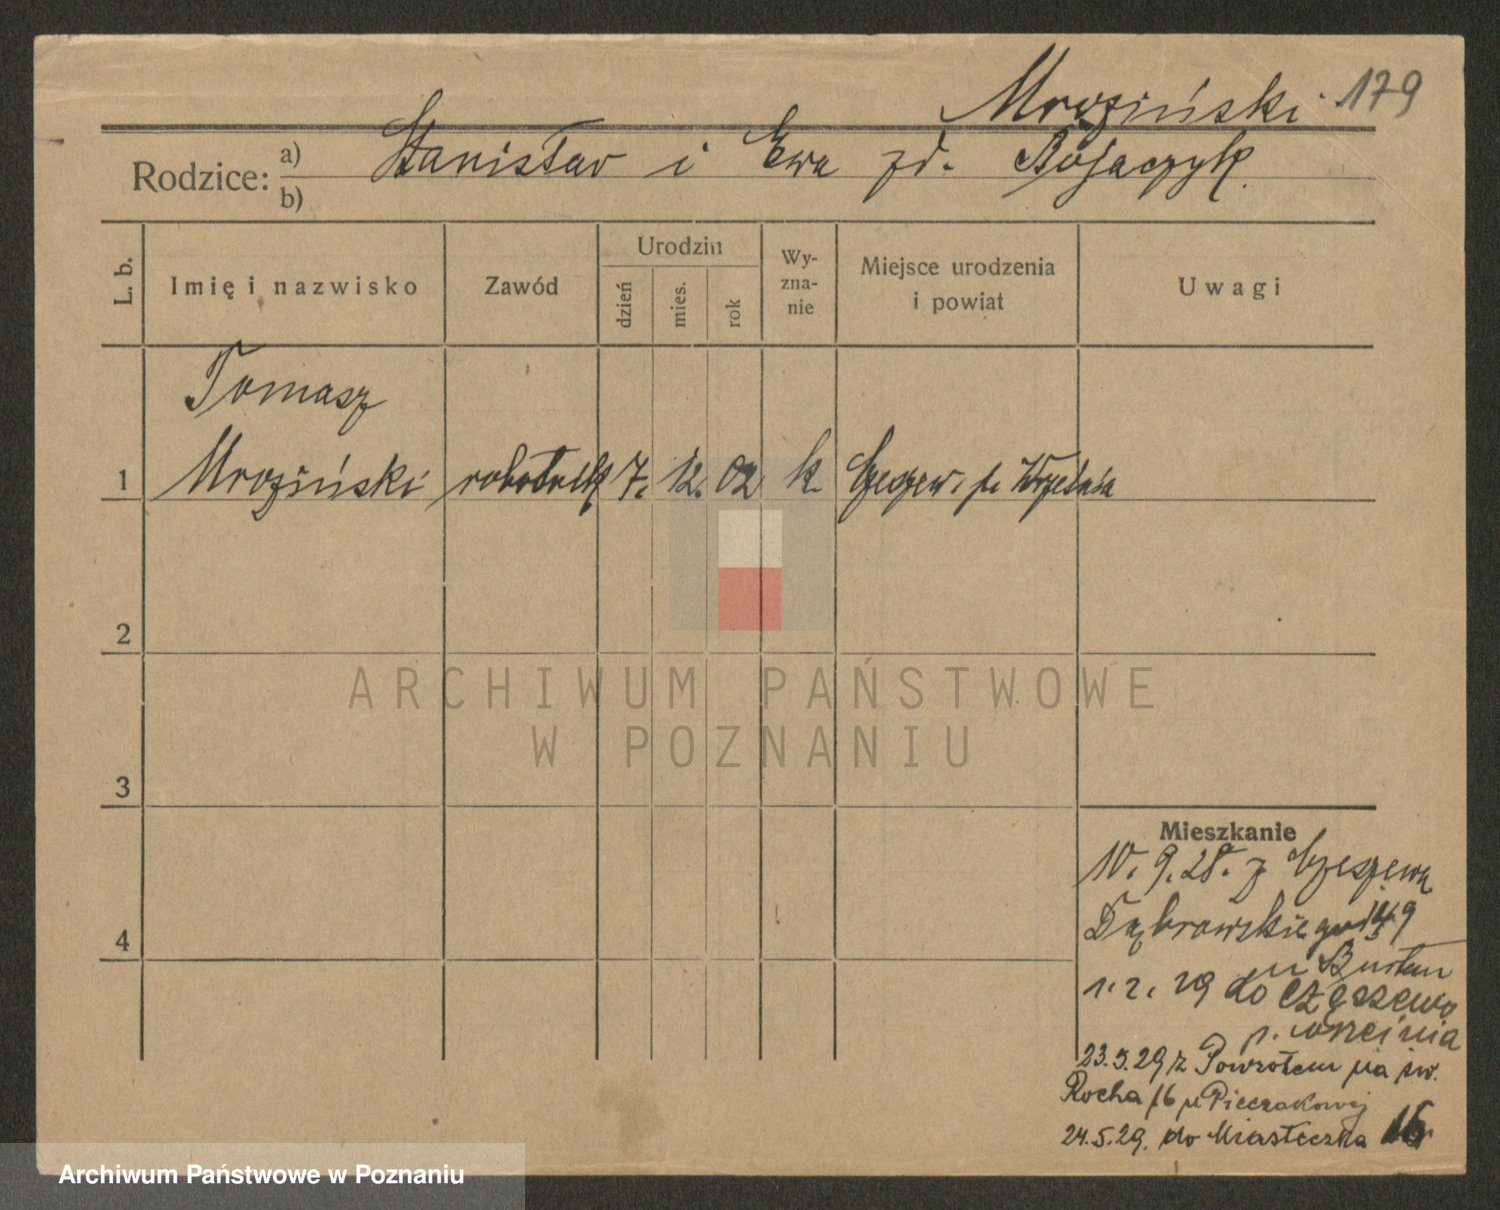 Mroziński 179
Rodzice: a) Stanisław i Ewa zd. Bojaczyk
b)
L. b. Imię i nazwisko Zawód Urodzin dzień mies. rok Wyznanie Miejsce urodzenia i powiat Uwagi
Tomasz
1 Mroziński robotnik 7. 12. 02 k. Czeszew. p. Września
2
3
4
Mieszkanie
10. 9. 28. z Czeszewa
Dąbrowskiego
1. 2. 29 do Czeszewo
p. Września
23.5.29 z Powrotem na św.
Rocha 16 u Pieczakowej
24.5.29. do Miasteczka
ARCHIWUM PAŃSTWOWE
W POZNANIU
Archiwum Państwowe w Poznaniu